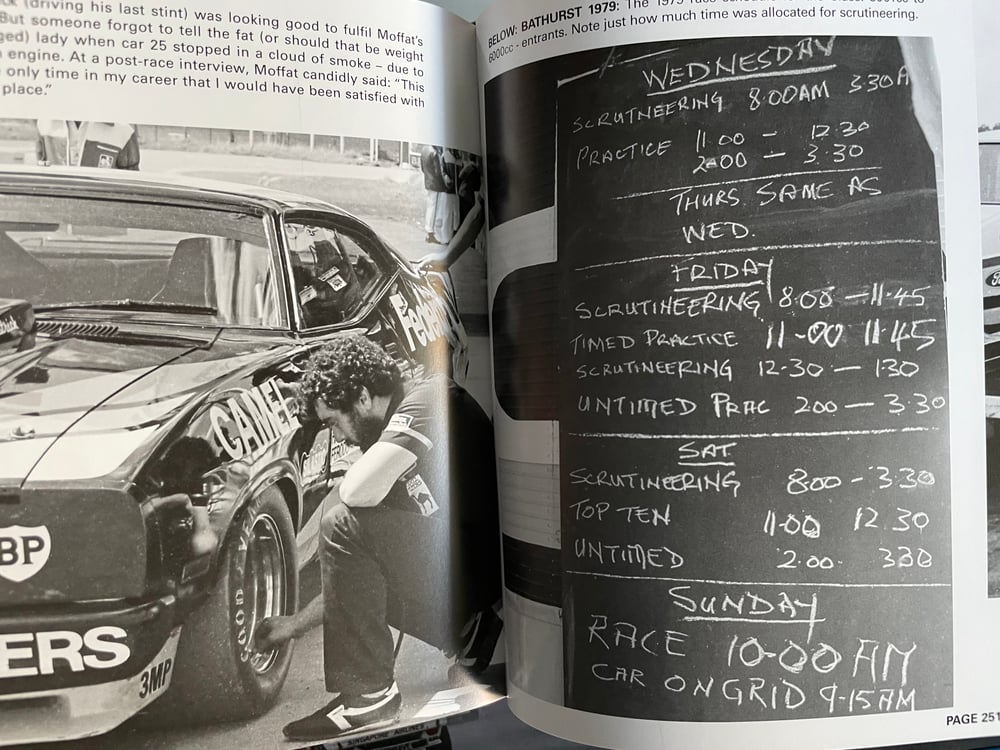 (driving his last stint) was looking good to fulfil Moffat's
But someone forgot to tell the fat (or should that be weight
ged) lady when car 25 stopped in a cloud of smoke – due to
engine. At a post-race interview, Moffat candidly said: "This
only time in my career that I would have been satisfied with
place."
CAMEL
BP
ERS
3MP
GOOD
BELOW: BATHURST 1979: The 1979 race schedule for the
6000cc - entrants. Note just how much time was allocated for scrutineering.
WEDNESDAY
SCRUTNEERING 8.00AM 3.30A
PRACTICE 11.00 — 12.30
2-00 — 3.30
THURS. SAME AS
WED.
FRIDAY
SCRUTINEERING 8.00 — 11.45
TIMED PRACTICE 11-00 11.45
SCRUTINEERING 12-30 — 1.30
UNTIMED PRAC 2.00 — 3.30
SAT
SCRUTINEERING 8.00 - 3.30
TOP TEN 11.00 12.30
UNTIMED 2.00. 330
SUNDAY
RACE 10-00 AM
CAR ON GRID 9-15AM
PAGE 251